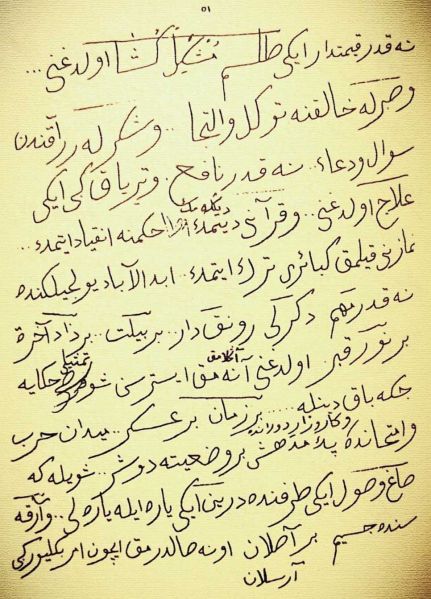 ٥١
نه قدر قیمتدار ایکی طلسم مشکل کشا اولدغنی...
وصبر له خالقنه توکل و التجا.. و شکر له رزاقندن
سوال و دعاء.. نه قدر نافع.. و تریاق کبی ایکی
علاج اولدغنی.. و قرآنی دیکله‌مك حکمنه انقیاد ایتمك..
نمازینی قیلمق کبائری ترك ایتمك.. ابد الآباد یولجیلکنده
نه قدر مهم دکرلی رونقدار.. بر بیلت.. بر زاد آخرة
بر نور قبر اولدغنی آکلامق ایسترسه‌ڭ شو تمثیلی حکایه
جکه باق دیڭله... بر زمان بر عسکر.. میدان حرب
و امتحانده کار و زار دورانده پك مدهش بر وضعیته دوشر.. شویله که
صاغ و صول ایکی طرفنده درین ایکی یاره ایله یاره‌لی.. و آرقه
سنده جسیم بر آصلان اونه صالدرمق ایچون امر بکلیور کبی
آرسلان